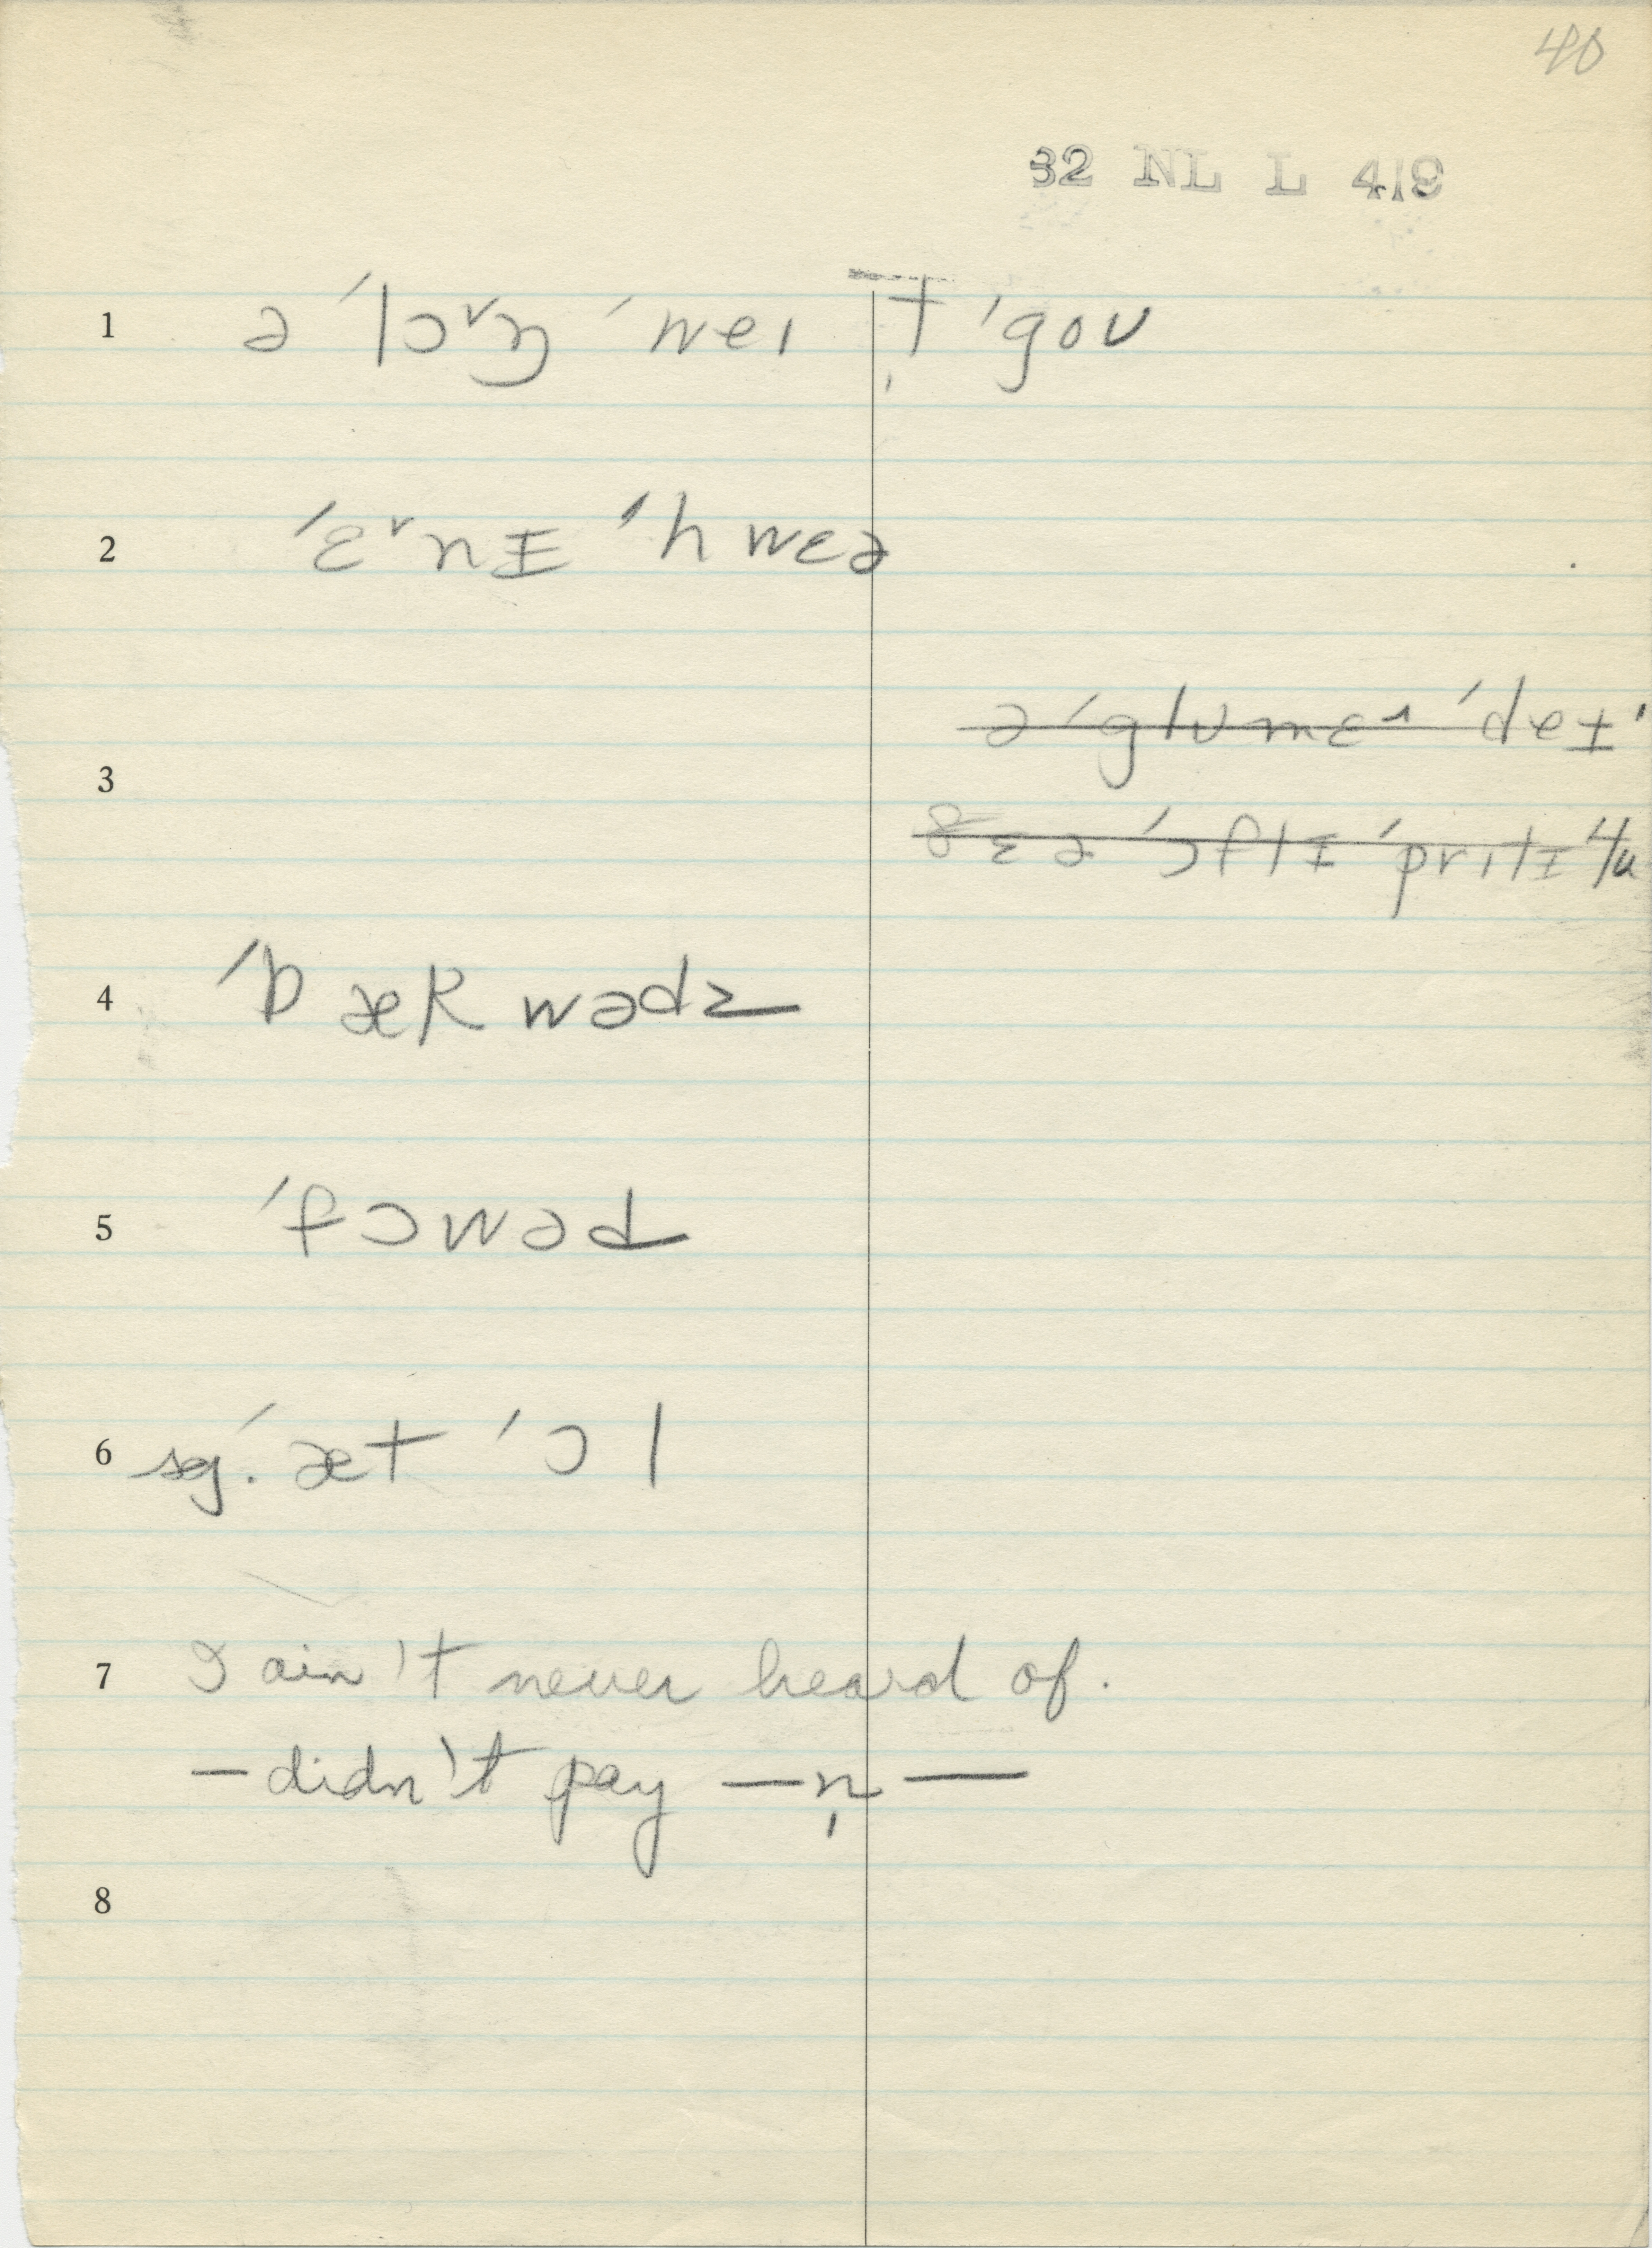 40
32 NL L 419
1 ə ˈlɔ˅ŋ ˈweɪ t̩ ˈgoʊ
2 ˈɛ˅nɪ ˈhwɛə
ə ˈglʊmɛ˄ ˈdeɪ
3
ðɛə ˈɔftɪ ˈprɪtɪ
4 ˈbækwədz
5 ˈfɔwəd
6 sg. ˈæt ˈɔl
7 I ain't never heard of.
— didn't pay — n̩ —
8